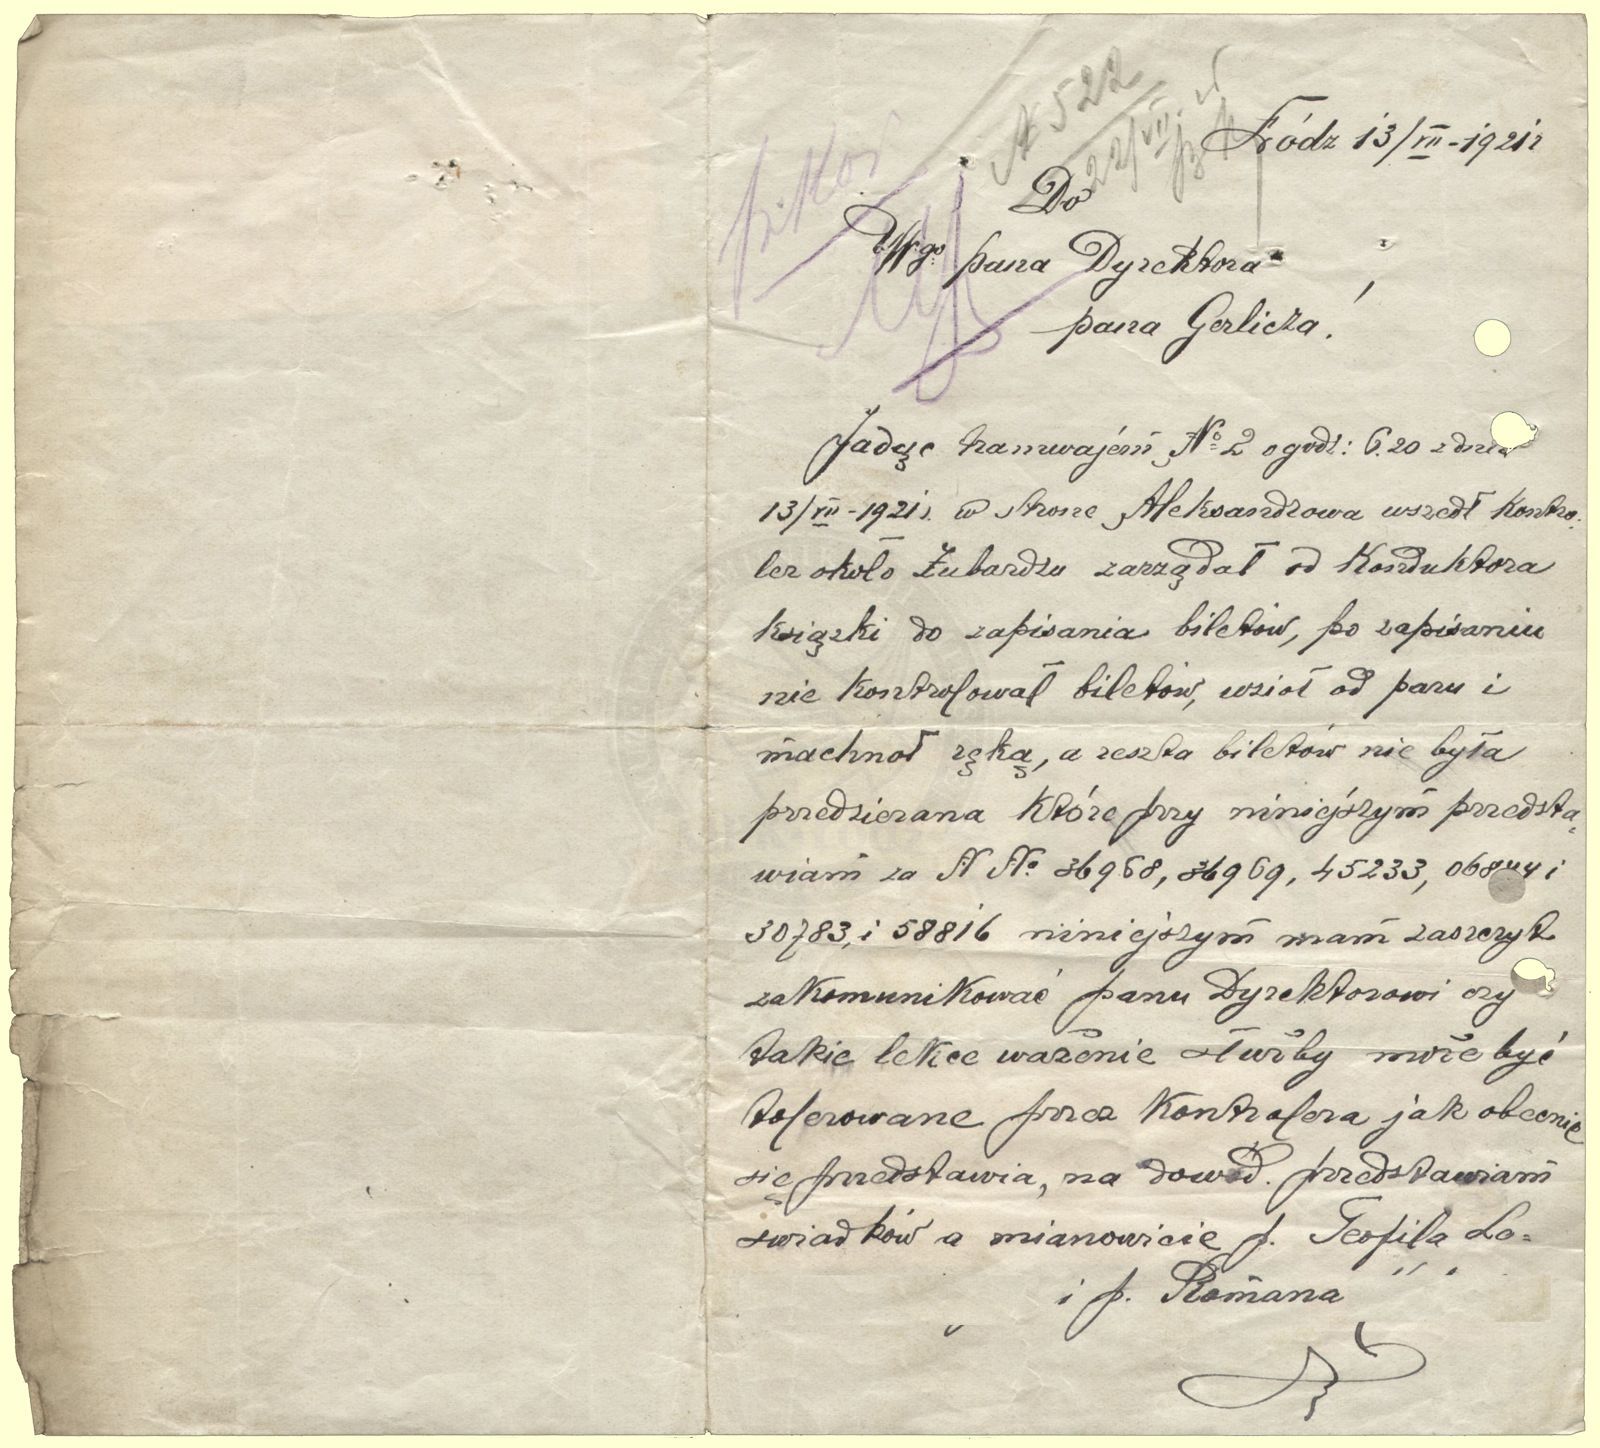 № 522
22/VII. 21
Łódz 13/VII-1921r
Do
Wgo pana Dyrektora
pana Gerlicza.
Jadąc tramwajem № 2 o godz: 6.20 z dnia
13/VII-1921r. w strone Aleksandrowa wszedł kontro-
ler około Żubardzu zarządał od Konduktora
książki do zapisania biletów, po zapisaniu
nie kontrolował biletów, wzioł od paru i
machnoł ręką, a reszta biletów nie była
przedzierana które przy niniejszym przedsta-
wiam za N №. 36968, 36969, 45233, i
30783, i 58816 niniejszym mam zaszczyt
zakomunikować panu Dyrektorowi czy
takie lekce ważenie służby może być
tolerowane przez Kontrolera jak obecnie
się przedstawia, na dowód. przedstawiam
świadków a mianowicie p. Teofila Lo-
i p. Romana